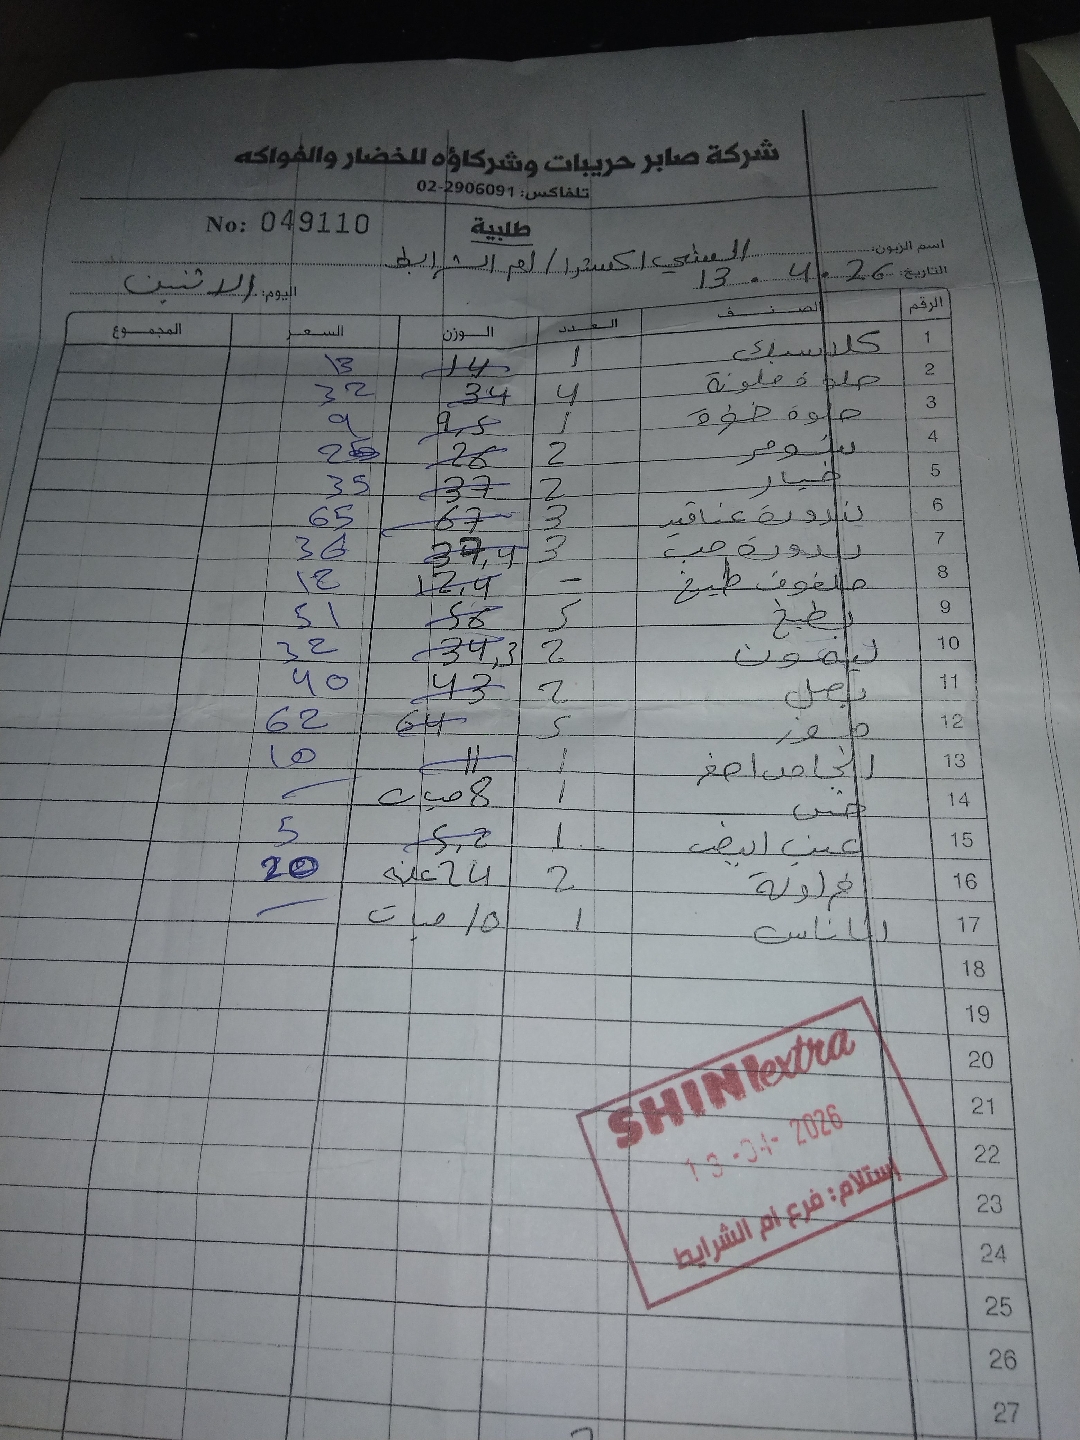 شركة صابر حريبات وشركاؤه للخضار والفواكه
تلفاكس: 02-2906091
No: 049110
طلبية
اسم الزبون: الشني اكسترا / ام الشرايط
التاريخ: 13.4.26 اليوم: الاثنين
الرقم الصنف العدد الوزن السعر المجموع
1 كلاسيك 1 14 13
2 حلوة ملونة 4 34 32
3 حلوة 1 9,5 9
4 بومر 2 28
5 خيار 2 37 35
6 بندورة عناقيد 3 67 65
7 بندورة حب 3 37,4 36
8 ملفوف طبيخ - 12,4 12
9 بطيخ 5 56 51
10 ليمون 2 34,3 32
11 بصل 2 43 40
12 موز 5 64 62
13 انجاص اصفر 1 11 10
14 خس 1 8 حبات
15 عنب ابيض 1 5,2 5
16 فراولة 2 24 علبه 20
17 اناناس 1 10 حبات
18
19
20
21
22
23
24
25
26
27
SHINI extra
13-04-2026
استلام: فرع ام الشرايط